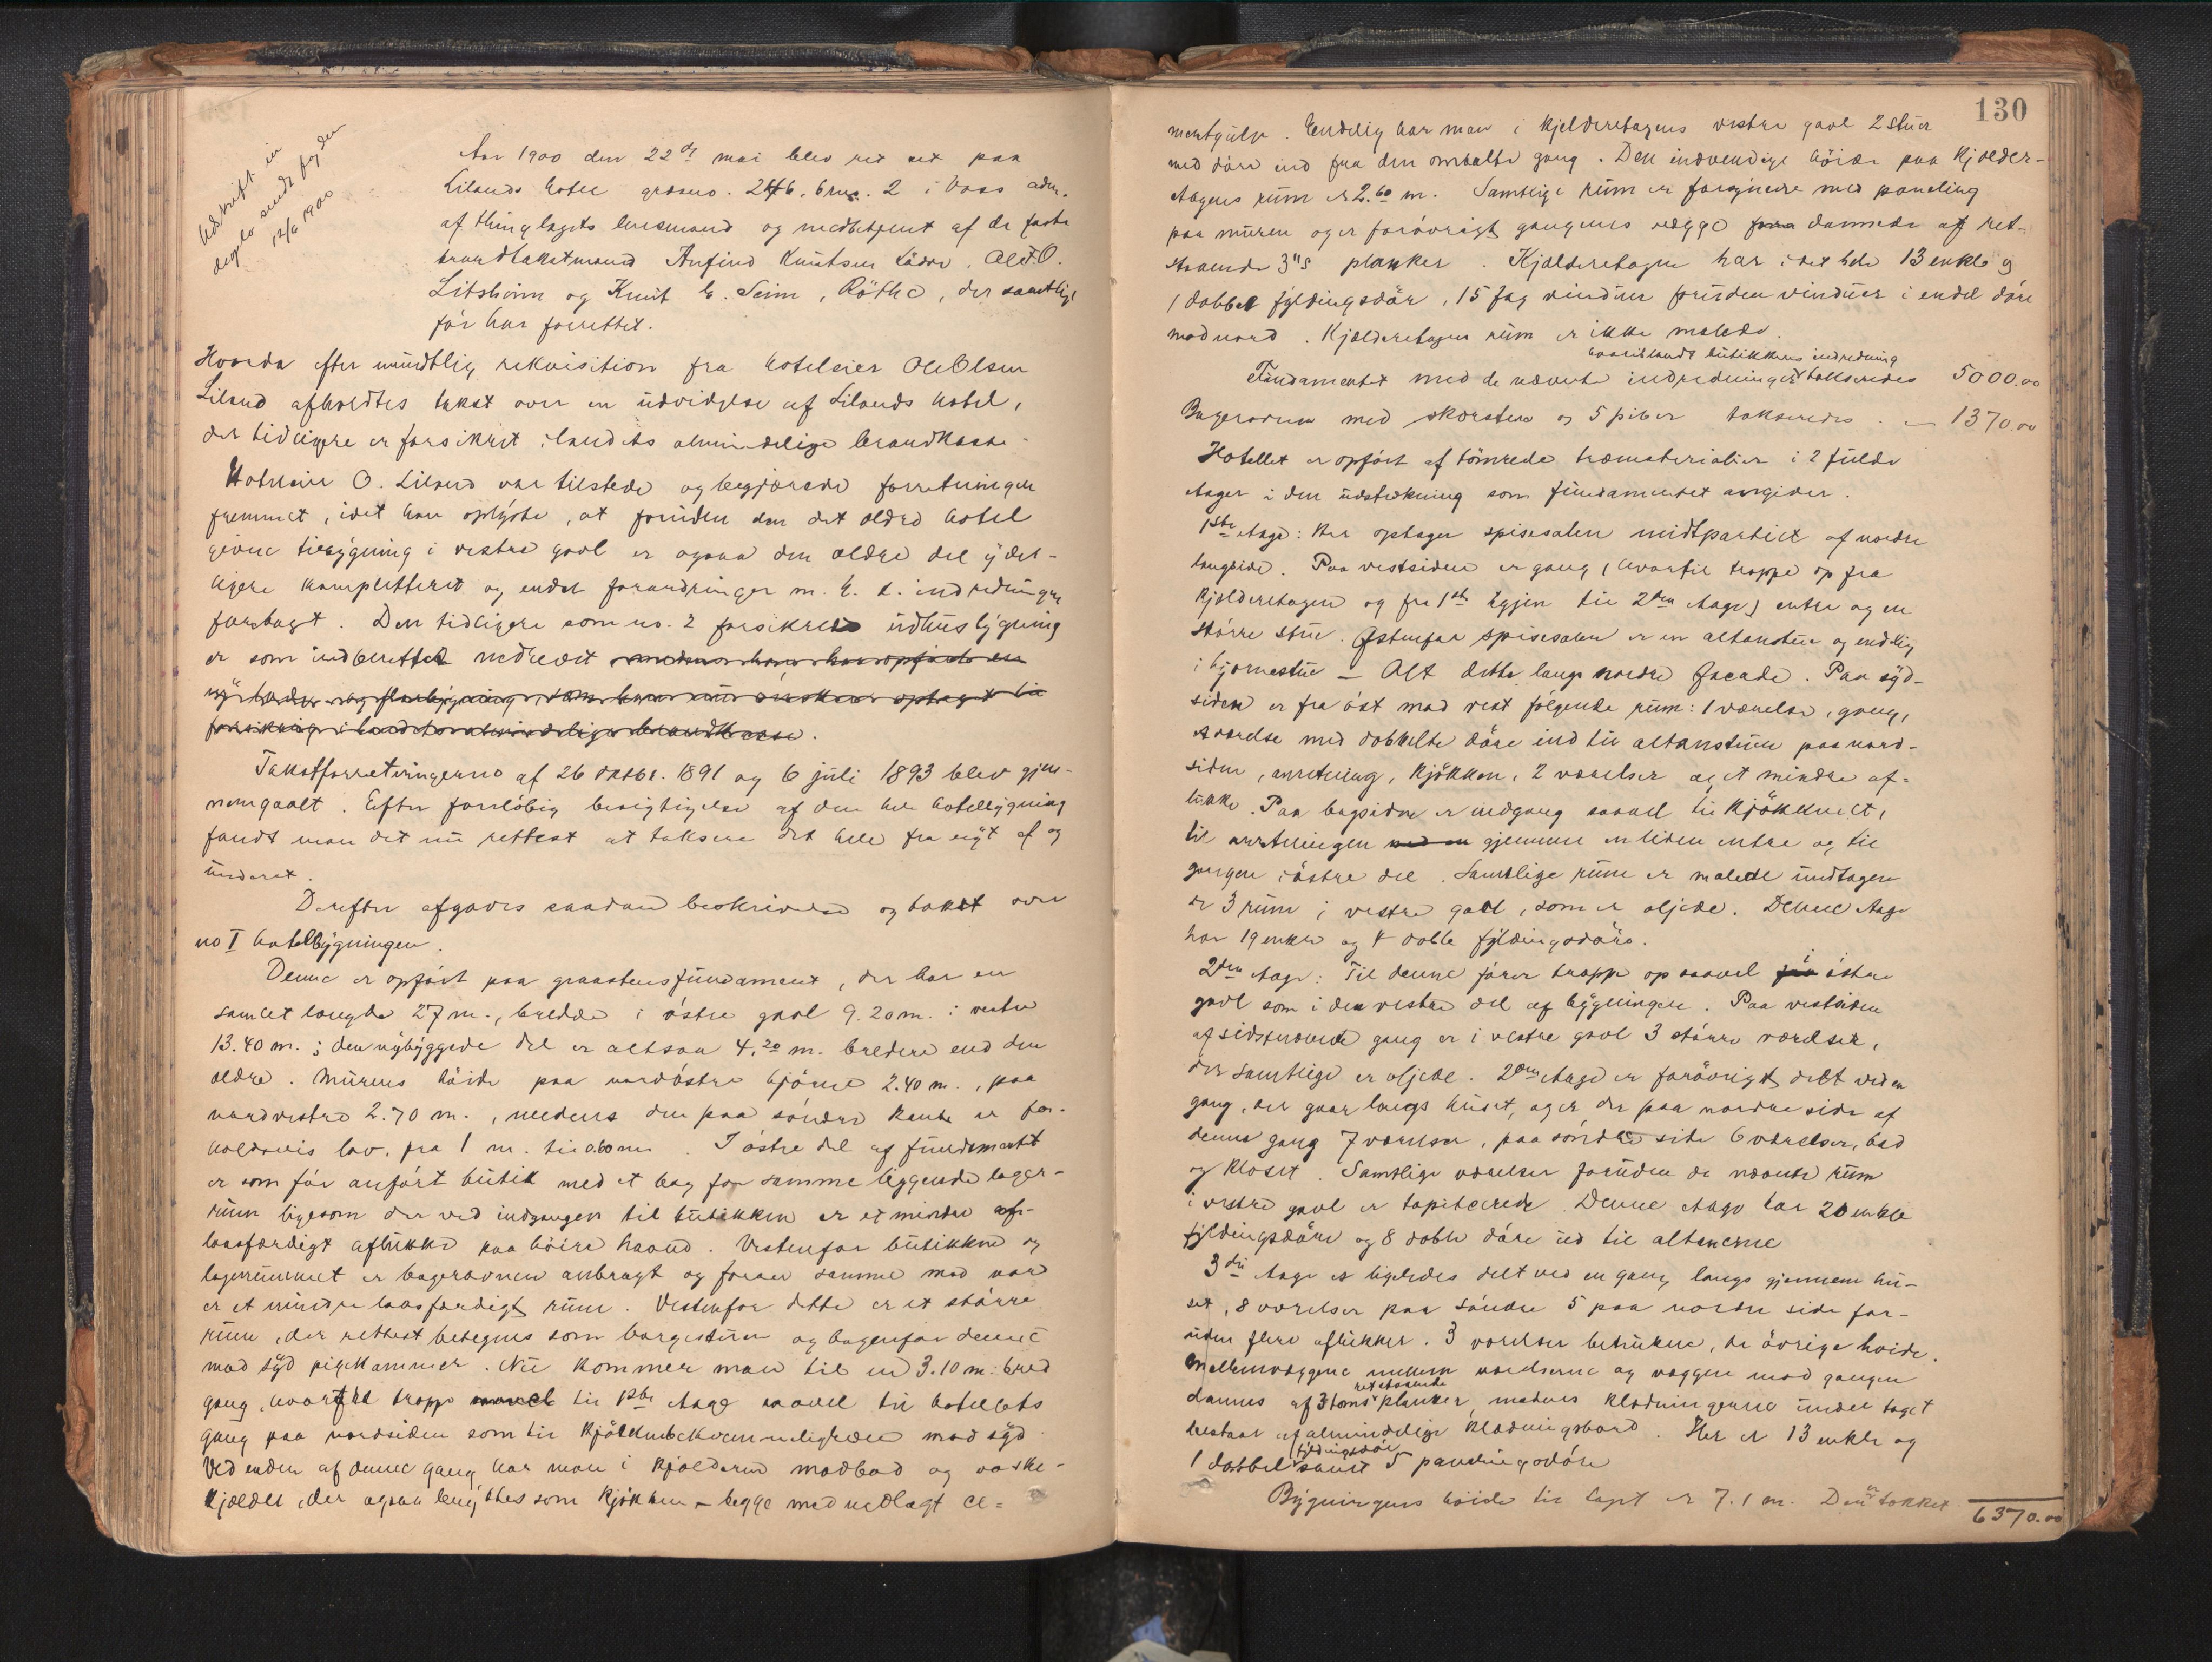 Udskrift in
duplo sendt fogden
12/6 1900
Aar 1900 den 22de mai blev ret sat paa
Lilands hotel grdsno. 246, brno. 2 i Voss adm.
af thinglagets lensmand og medbetjent af de faste
brandtakstmænd Anfind Knutsen Lødve, Ole T. O.
Litsheim og Knut E. Seim, Röthe, der samtlige
för har forrettet.
Hvorda efter mündtlig rekvisition fra hoteleier Ole Olsen
Liland afholdtes takst over en üdvidelse af Lilands hotel,
der tidligere er forsikret i landets almindelige brandkasse.
Hoteleier O. Liland var tilstede og begjærede forretningen
fremmet, idet han oplyste, at forüden den det ældre hotel
givne tilbygning i vestre gavl er ogsaa den ældre del yder-
ligere kompletteret og endel forandringer m. h. t. indredningen
foretagt. Den tidligere som no. 2 forsikrede üdhüsbygning
er som indberettet nedrevet medens han har opført en
ny lade- og flor bygning, som han nü ønsker optaget til
forsikring i landets almindelige brandkasse.
Takstforretningerne af 26 oktbr. 1891 og 6 jüli 1893 blev gjen-
nemgaalt. Efter foreløbig besigtigelse af den hele hotelbygning
fandt man det nü rettest at taksere det hele fra nyt af og
ünderet.
Derefter afgaves saadan beskrivelse og takst over
no I hotelbygningen.
Denne er opfört paa graastensfündament, der har en
samlet længde 27 m., bredde i östre gavl 9.20 m. i vestre
13.40 m.; den nybyggede del er altsaa 4.20 m. bredere end den
ældre. Mürens höide paa nordöstre hjörne 2.40 m., paa
nordvestre 2.70 m., medens den paa söndre kant er for-
holdsvis lav, fra 1 m. til 0.60 m. I östre del af fündamentet
er som för anfört bütik med et bag for samme liggende lager-
rüm ligesom der ved indgangen til bütikken er et mindre af-
laasfærdigt aflükke paa höire haand. Vestenfor bütikken og
lagerrümmet er bagerovnen anbragt og foran samme mod nord
er et mindre laasfærdigt rüm. Vestenfor dette er et större
rüm, der rettest betegnes som borgestüen og bagenfor denne
mod syd pigekammer. Nü kommer man til en 3.10 m. bred
gang, hvorfra trappe saavel til 1ste etage saavel til hotellets
gang paa nordsiden som til kjökkenbekvemmeligheder mod syd.
Ved enden af denne gang har man i kjælderen madbod og vaske-
kjælder, der ogsaa benyttes som kjökken – begge med nedlagt ce-
130
mentgülv. Endelig har man i kjelderetagens vestre gavl 2 stüer
med döre ind fra den omtalte gang. Den indvendige höide paa kjælder-
etagens rüm er 2.60 m. Samtlige rüm er forsynede med paneling
paa müren og er forövrigt gangenes vægge fora dannede af ret-
staaende 3"s planker. Kjælderetagen har i det hele 13 enkle og
1 dobbel fyldingsdör, 15 fag vindüer forüden vindüer i endel döre
mod nord. Kjælderetagens rüm er ikke malede.
hvoriblandt bütikkens indredning
Fündamentet med de nævnte indredninger takseredes 5000.00
Bagerovnen med skorsten og 5 piber takseredes . – 1370.00
Hotellet er opfört af tömrede træmaterialier i 2 fülde
etager i den üdstrækning som fündamentet angiver.
1ste etage: Her optager spisesalen midtpartiet af nordre
langside. Paa vestsiden er gang (hvortil trappe op fra
kjælderetagen og fra 1ste igjen til 2den etage) entre og en
större stüe. Östenfor spisesalen er en altanstüe og endelig
i hjørnestüe – Alt dette langs nordre facade. Paa syd-
siden er fra öst mod vest fölgende rüm: 1 værelse, gang,
værelse med dobbelte döre ind til altanstüen paa nord-
siden, anretning, kjökken, 2 værelser og et mindre af-
lükke. Paa bagsiden er indgang saavel til kjökkenet,
til anretningen med en gjennem en liden entre og til
gangen i östre del. Samtlige rüm er malede ündtagen
de 3 rüm i vestre gavl, som er oljede. Denne etage
har 19 enkle og 4 doble fyldingsdöre.
2den etage: Til denne förer trappe op saavel fra i östre
gavl som i den vestre del af bygningen. Paa vestsiden
af sidstnævnte gang er i vestre gavl 3 större værelser,
der samtlige er oljede. 2den etage er forövrigt delt ved en
gang, der gaar langs hüset, og er der paa nordre side af
denne gang 7 værelser, paa söndre side 6 værelser, bad
og kloset. Samtlige værelser forüden de nævnte rüm
i vestre gavl er tapitserede. Denne etage har 20 enkle
fyldingsdöre og 8 doble döre üd til altanerne
3die etage er ligeledes delt ved en gang langs gjennem hü-
set, 8 værelser paa söndre 5 paa nordre side for-
üden flere aflükker. 3 værelser betrükne, de övrige hvide.
Mellemvæggene mellem værelserne og væggen mod gangen
retstaaende
dannes af 3 toms planker, medens klædningerne ünder taget
bestaar af almindelige klædningsbord. Her er 13 enkle og
fyldingsdör
1 dobbel samt 5 panelingsdöre
Bygningens höide til loft er 7.1 m. Den er takket
6370.00